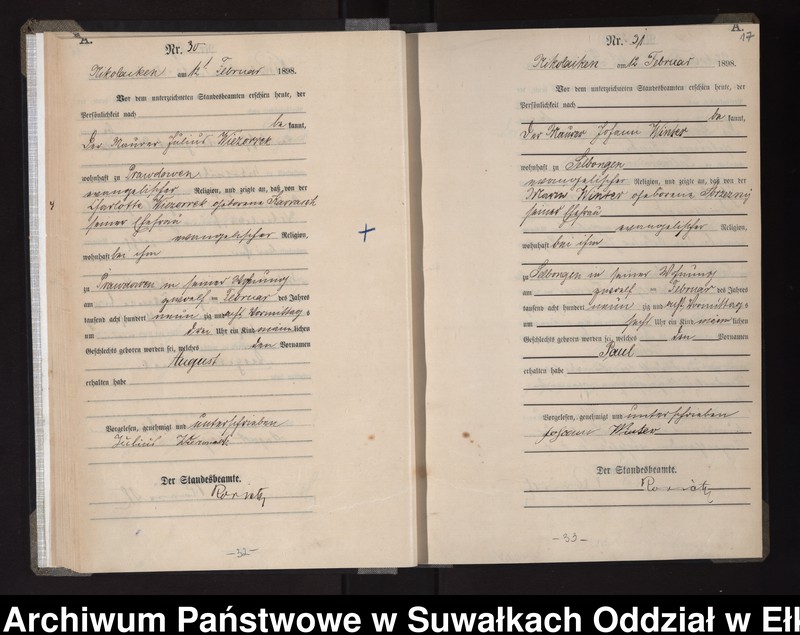 A.
Nr. 30
Nikolaiken am 12 Februar 1898.
Vor dem unterzeichneten Standesbeamten erschien heute, der
Persönlichkeit nach
be kannt,
Der Maurer Julius Wiezorrek
wohnhaft zu Prawdowen
evangelischer Religion, und zeigte an, daß von der
Charlotte Wiezorrek geborene
seiner Ehefrau
evangelischer Religion,
wohnhaft bei ihm
zu Prawdowen in seiner Wohnung
am zwoelf ten Februar des Jahres
tausend acht hundert neun zig und acht Vormittag s
um Uhr ein Kind männ lichen
Geschlechts geboren worden sei, welches den Vornamen
August
erhalten habe
Vorgelesen, genehmigt und unterschrieben
Julius
Der Standesbeamte.
-32-
A.
17
Nr. 31
Nikolaiken am 12 Februar 1898.
Vor dem unterzeichneten Standesbeamten erschien heute, der
Persönlichkeit nach
be kannt,
Der Maurer Johann Winter
wohnhaft zu Selbongen
evangelischer Religion, und zeigte an, daß von der
Marie Winter geborene
seiner Ehefrau
evangelischer Religion,
wohnhaft bei ihm
zu Selbongen in seiner Wohnung
am zwoelf ten Februar des Jahres
tausend acht hundert neun zig und acht Vormittag s
um sechs Uhr ein Kind männ lichen
Geschlechts geboren worden sei, welches den Vornamen
Paul
erhalten habe
Vorgelesen, genehmigt und unterschrieben
Johann Winter
Der Standesbeamte.
-33-
Archiwum Państwowe w Suwałkach Oddział w Ełk